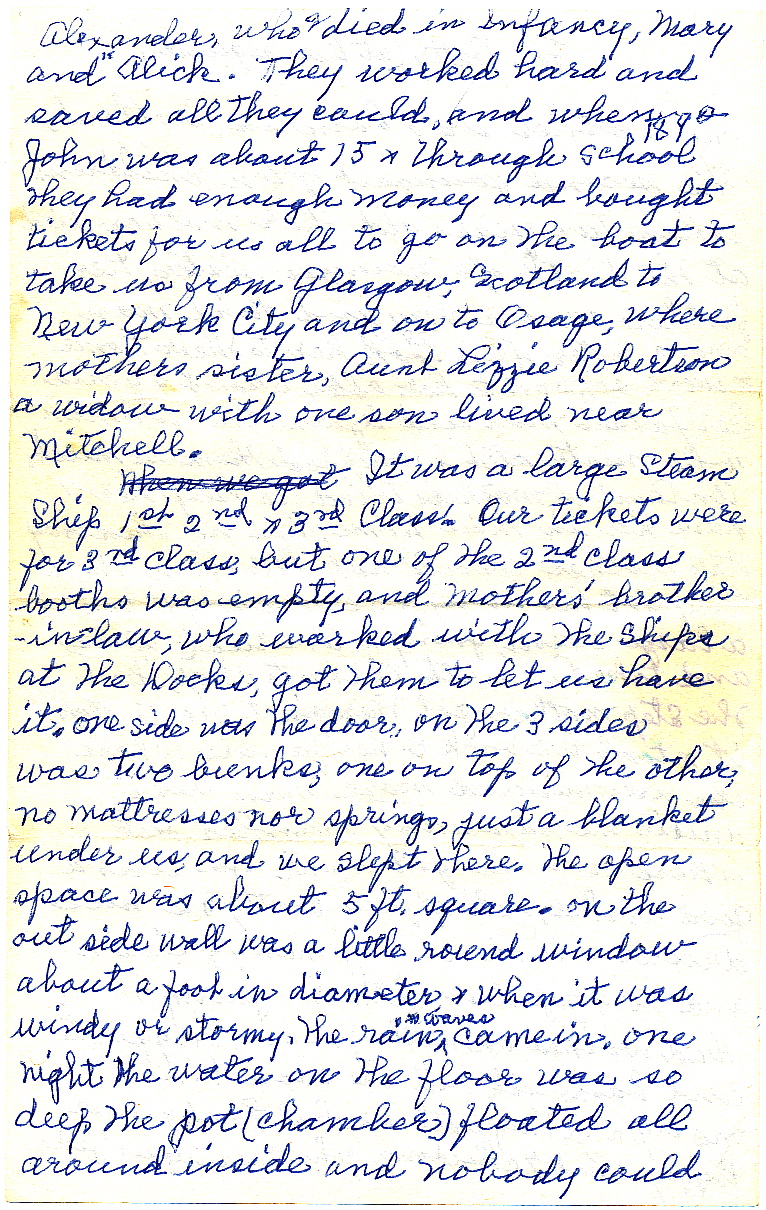 Alexander, who died in Infancy, Mary
and Alick. They worked hard and
saved all they could, and when
1890
John was about 15 & through School
they had enough money and bought
tickets for us all to go on the boat to
take us from Glasgow, Scotland to
New York City and on to Osage, where
mothers sister, Aunt Lizzie Robertson
a widow with one son lived near
Mitchell.
When we got It was a large Steam
Ship 1st 2nd & 3rd Class. Our tickets were
for 3rd class, but one of the 2nd class
booths was empty, and Mothers' brother
-in-law, who worked with the Ships
at the Docks, got them to let us have
it. one side was the door, on the 3 sides
was two bunks, one on top of the other,
no mattresses nor springs, just a blanket
under us, and we slept there. The open
space was about 5 ft. square. on the
out side wall was a little round window
about a foot in diameter & when it was
windy or stormy, the rain, & waves came in. one
night the water on the floor was so
deep the pot (chamber) floated all
around inside and nobody could